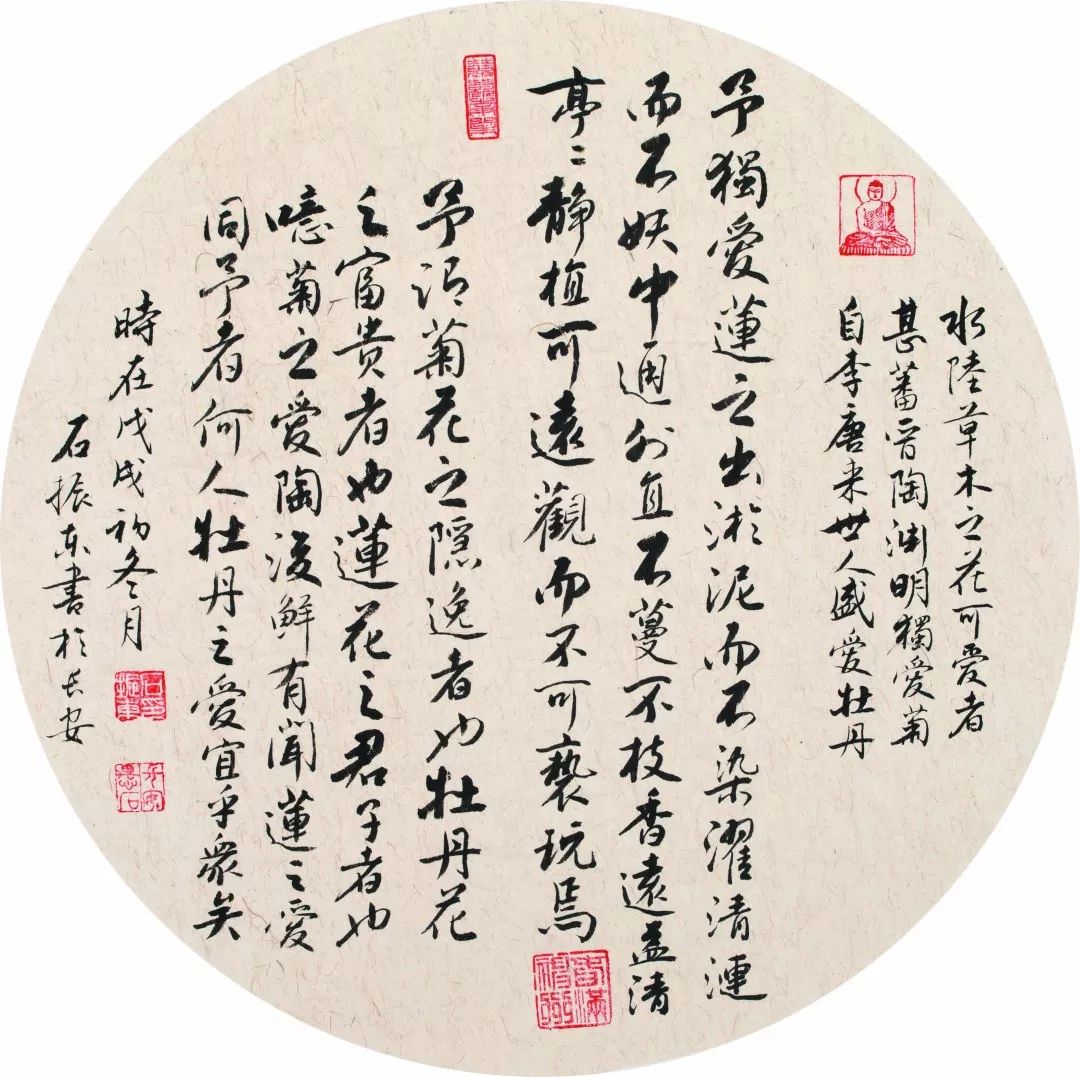 水陸草木之花可愛者
甚蕃晋陶渊明獨愛菊
自李唐来世人盛愛牡丹
予獨愛蓮之出淤泥而不染濯清漣
而不妖中通外直不蔓不枝香遠益清
亭〻静植可遠觀而不可褻玩焉
予謂菊花之隱逸者也牡丹花
之富貴者也蓮花之君子者也
噫菊之愛陶後鮮有聞蓮之愛
同予者何人牡丹之愛宜乎衆矣
時在戊戌初冬月
石振东書於长安
石印振東